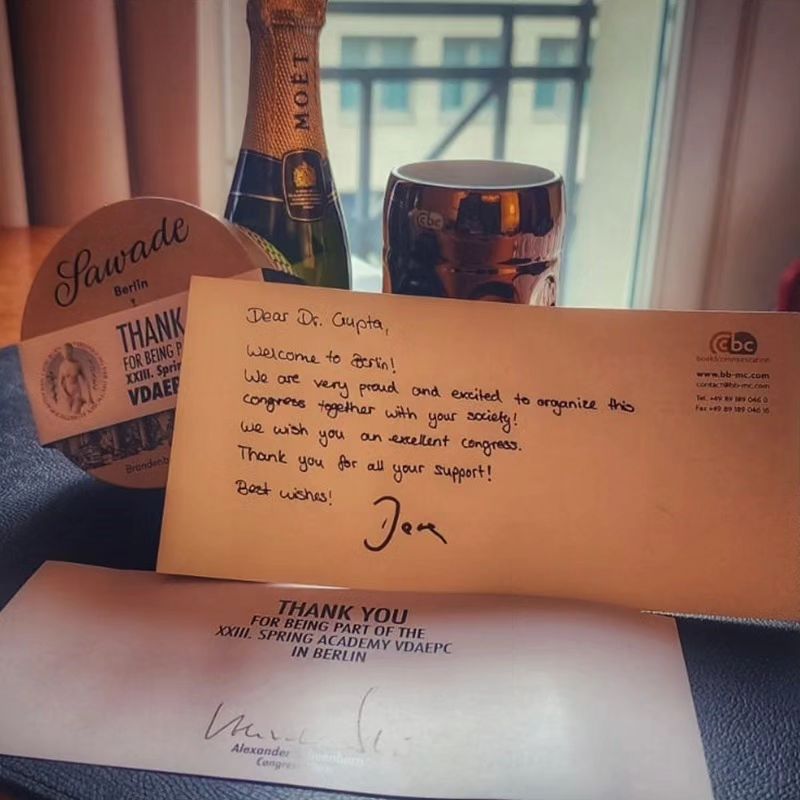 MOËT
Sawade
Berlin
THANK
FOR BEING P
XXIII. Sprin
VDAEP
Brandenb
cbc
Dear Dr. Gupta,
Welcome to Berlin!
We are very proud and excited to organize this
congress together with your society!
We wish you an excellent congress.
Thank you for all your support!
Best wishes!
bc
www.bb-mc.com
contact@bb-mc.com
Tel. +49 89 189 046 0
Fax +49 89 189 046 16
THANK YOU
FOR BEING PART OF THE
XXIII. SPRING ACADEMY VDAEPC
IN BERLIN
Alexander
Congre